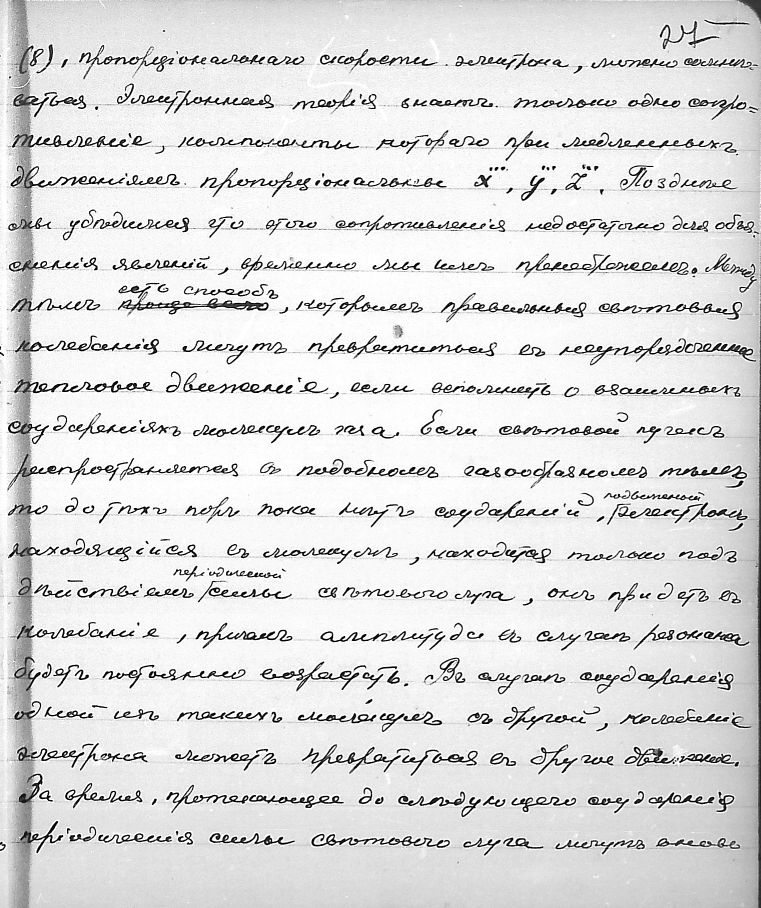 27
(8), пропорціональнаго скорости электрона, можно сомнѣ=
ваться. Электронная теорія знаетъ только одно сопро=
тивленіе, компоненты котораго при медленныхъ
движеніяхъ пропорціональны x⃛, y⃛, z⃛. Позднѣе
мы убѣдимся что этого сопротивленія недостаточно для объя-
сненія явленій, временно мы имъ пренебрежемъ. Между
тѣмъ есть способъ, которымъ правильныя свѣтовыя
колебанія могутъ превратиться въ неупорядоченное
тепловое движеніе, если вспомнить о взаимныхъ
соудареніяхъ молекулъ газа. Если свѣтовой пучекъ
распространяется въ подобномъ газообразномъ тѣлѣ,
то до тѣхъ поръ пока нѣтъ соудареній, подвижной электронъ,
находящійся въ молекулѣ, находится только подъ
дѣйствіемъ періодической силы свѣтового луча, онъ придетъ въ
колебаніе, причемъ амплитуда въ случаѣ резонанса
будетъ постоянно возрастать. Въ случаѣ соударенія
одной изъ такихъ молекулъ съ другой, колебаніе
электрона можетъ превратиться въ другое движеніе.
За время, протекающее до слѣдующего соударенія
періодическія силы свѣтового луча могутъ вновь